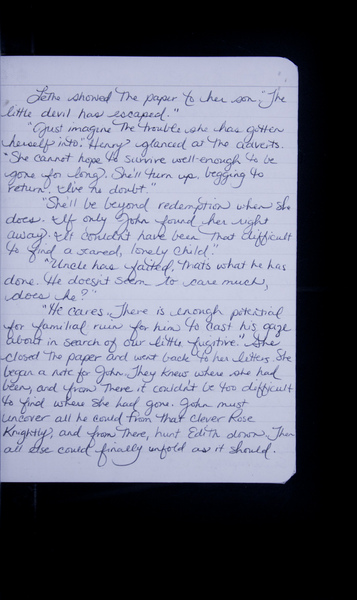 Lethe showed the paper to her son "The
little devil has escaped."
"Just imagine the trouble she has gotten
herself into." Henry glanced at the adverts.
"She cannot hope to survive well enough to be
gone for long. She'll turn up, begging to
return. I've no doubt."
"She'll be beyond redemption when she
does. If only John found her right
away. It couldn't have been that difficult
to find a scared, lonely child."
"Uncle has failed, that's what he has
done. He doesn't seem to care much,
does he?"
"He cares. There is enough potential
for familial ruin for him to cast his gaze
about in search of our little fugitive." She
closed the paper and went back to her letters. She
began a note for John. They knew where she had
been, and from there it couldn't be too difficult
to find where she had gone. John must
uncover all he could from that clever Rose
Knightly, and from there, hunt Edith down. Then
all else could finally unfold as it should.